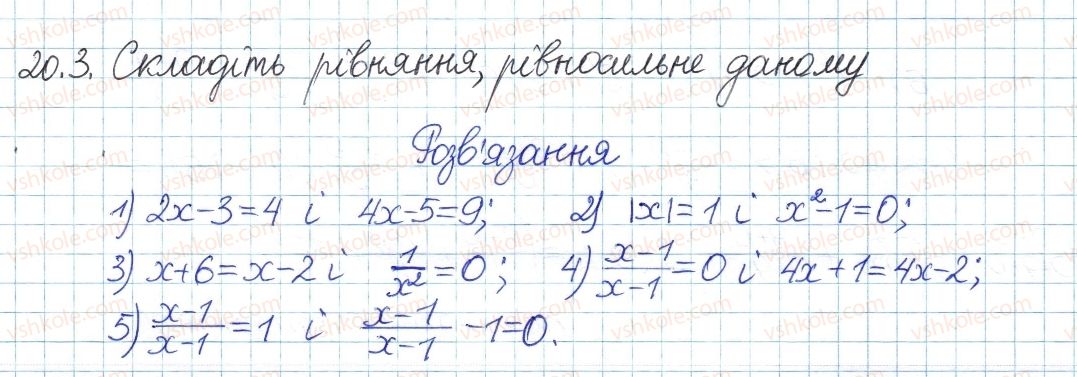 20.3. Складіть рівняння, рівносильне даному
Розв'язання
1) 2x-3=4 і 4x-5=9; 2) |x|=1 і x²-1=0;
3) x+6=x-2 і 1/x²=0; 4) (x-1)/(x-1)=0 і 4x+1=4x-2;
5) (x-1)/(x-1)=1 і (x-1)/(x-1)-1=0.